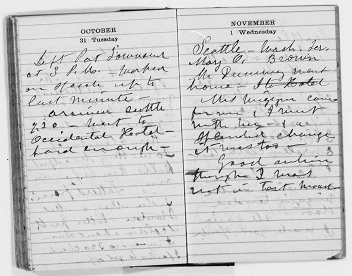 OCTOBER
31 Tuesday
Left Port Townsend
at 3 P.M. - worked
on speech up to
last minute -
arrived Seattle
7.30 - went to
Occidental Hotel -
paid enough -
NOVEMBER
1 Wednesday
Seattle - Wash. Ter.
Mary O. Brown
Mr went
home - to Hotel
Mrs came
for me & I went
with her - & a
splendid change
it was too -
Good audience
though I was
not in best mood -